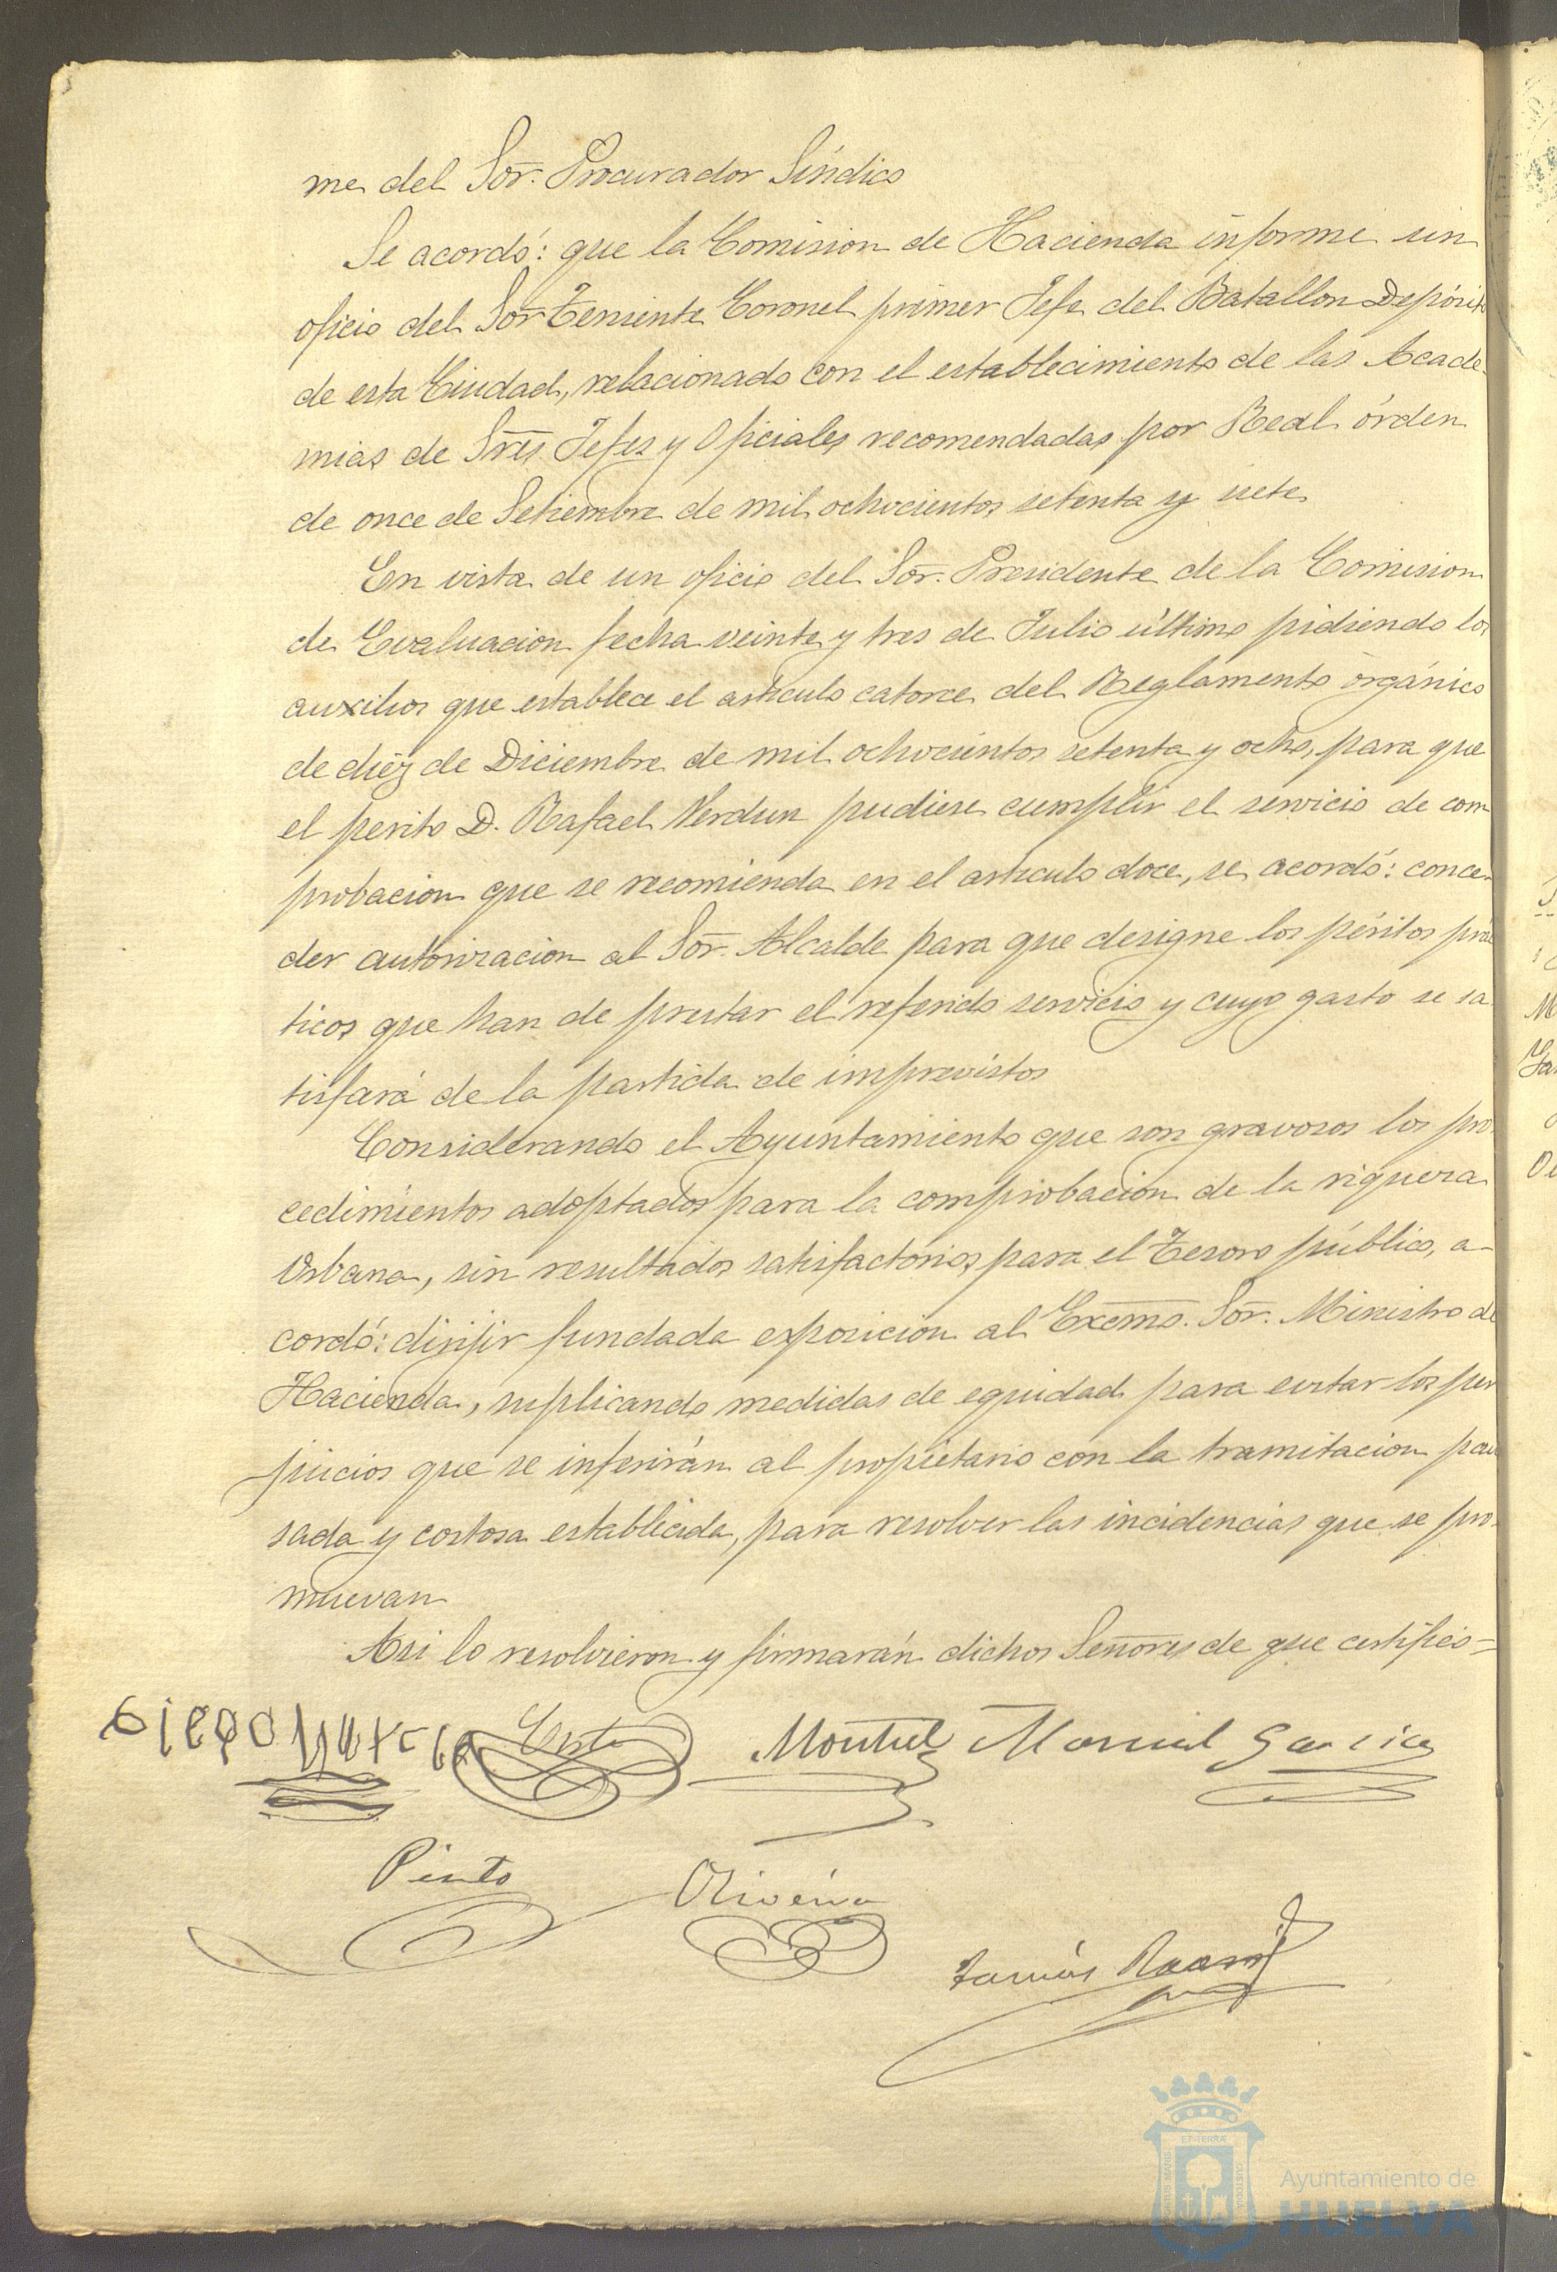 me del Sor. Procurador Síndico
Se acordó: que la Comision de Hacienda informe un
oficio del Sor Teniente Coronel primer Jefe del Batallon Depósito
de esta Ciudad, relacionado con el establecimiento de las Acade-
mias de Sres Jefes y Oficiales recomendadas por Real órden
de once de Setiembre de mil ochocientos setenta y siete
En vista de un oficio del Sor. Presidente de la Comision
de Evaluacion fecha veinte y tres de Julio último pidiendo los
auxilios que establece el artículo catorce del Reglamento orgánico
de diéz de Diciembre de mil ochocientos setenta y ocho, para que
el perito D. Rafael Verdun pudiese cumplir el servicio de com
probacion que se recomienda en el artículo doce, se acordó: conce-
der autorizacion al Sor. Alcalde para que designe los péritos prác
ticos que han de prestar el referido servicio y cuyo gasto se sa
tisfará de la partida de imprevistos
Considerando el Ayuntamiento que son gravosos los pro
cedimientos adoptados para la comprobacion de la riqueza
Urbana, sin resultados satisfactorios para el Tesoro público, a-
cordó: dirijir fundada exposicion al Excmo. Sor. Ministro de
Hacienda, suplicando medidas de equidad para evitar los per
juicios que se inferirán al propietario con la tramitacion pau
sada y costosa establecida, para resolver las incidencias que se pro-
muevan
Asi lo resolvieron y firmarán dichos Señores de que certifico=
Montiel Marcial Garcia
Pinto Oliveira
Tomás
ET TERRA
CUSTODIA
Ayuntamiento de
HUELVA